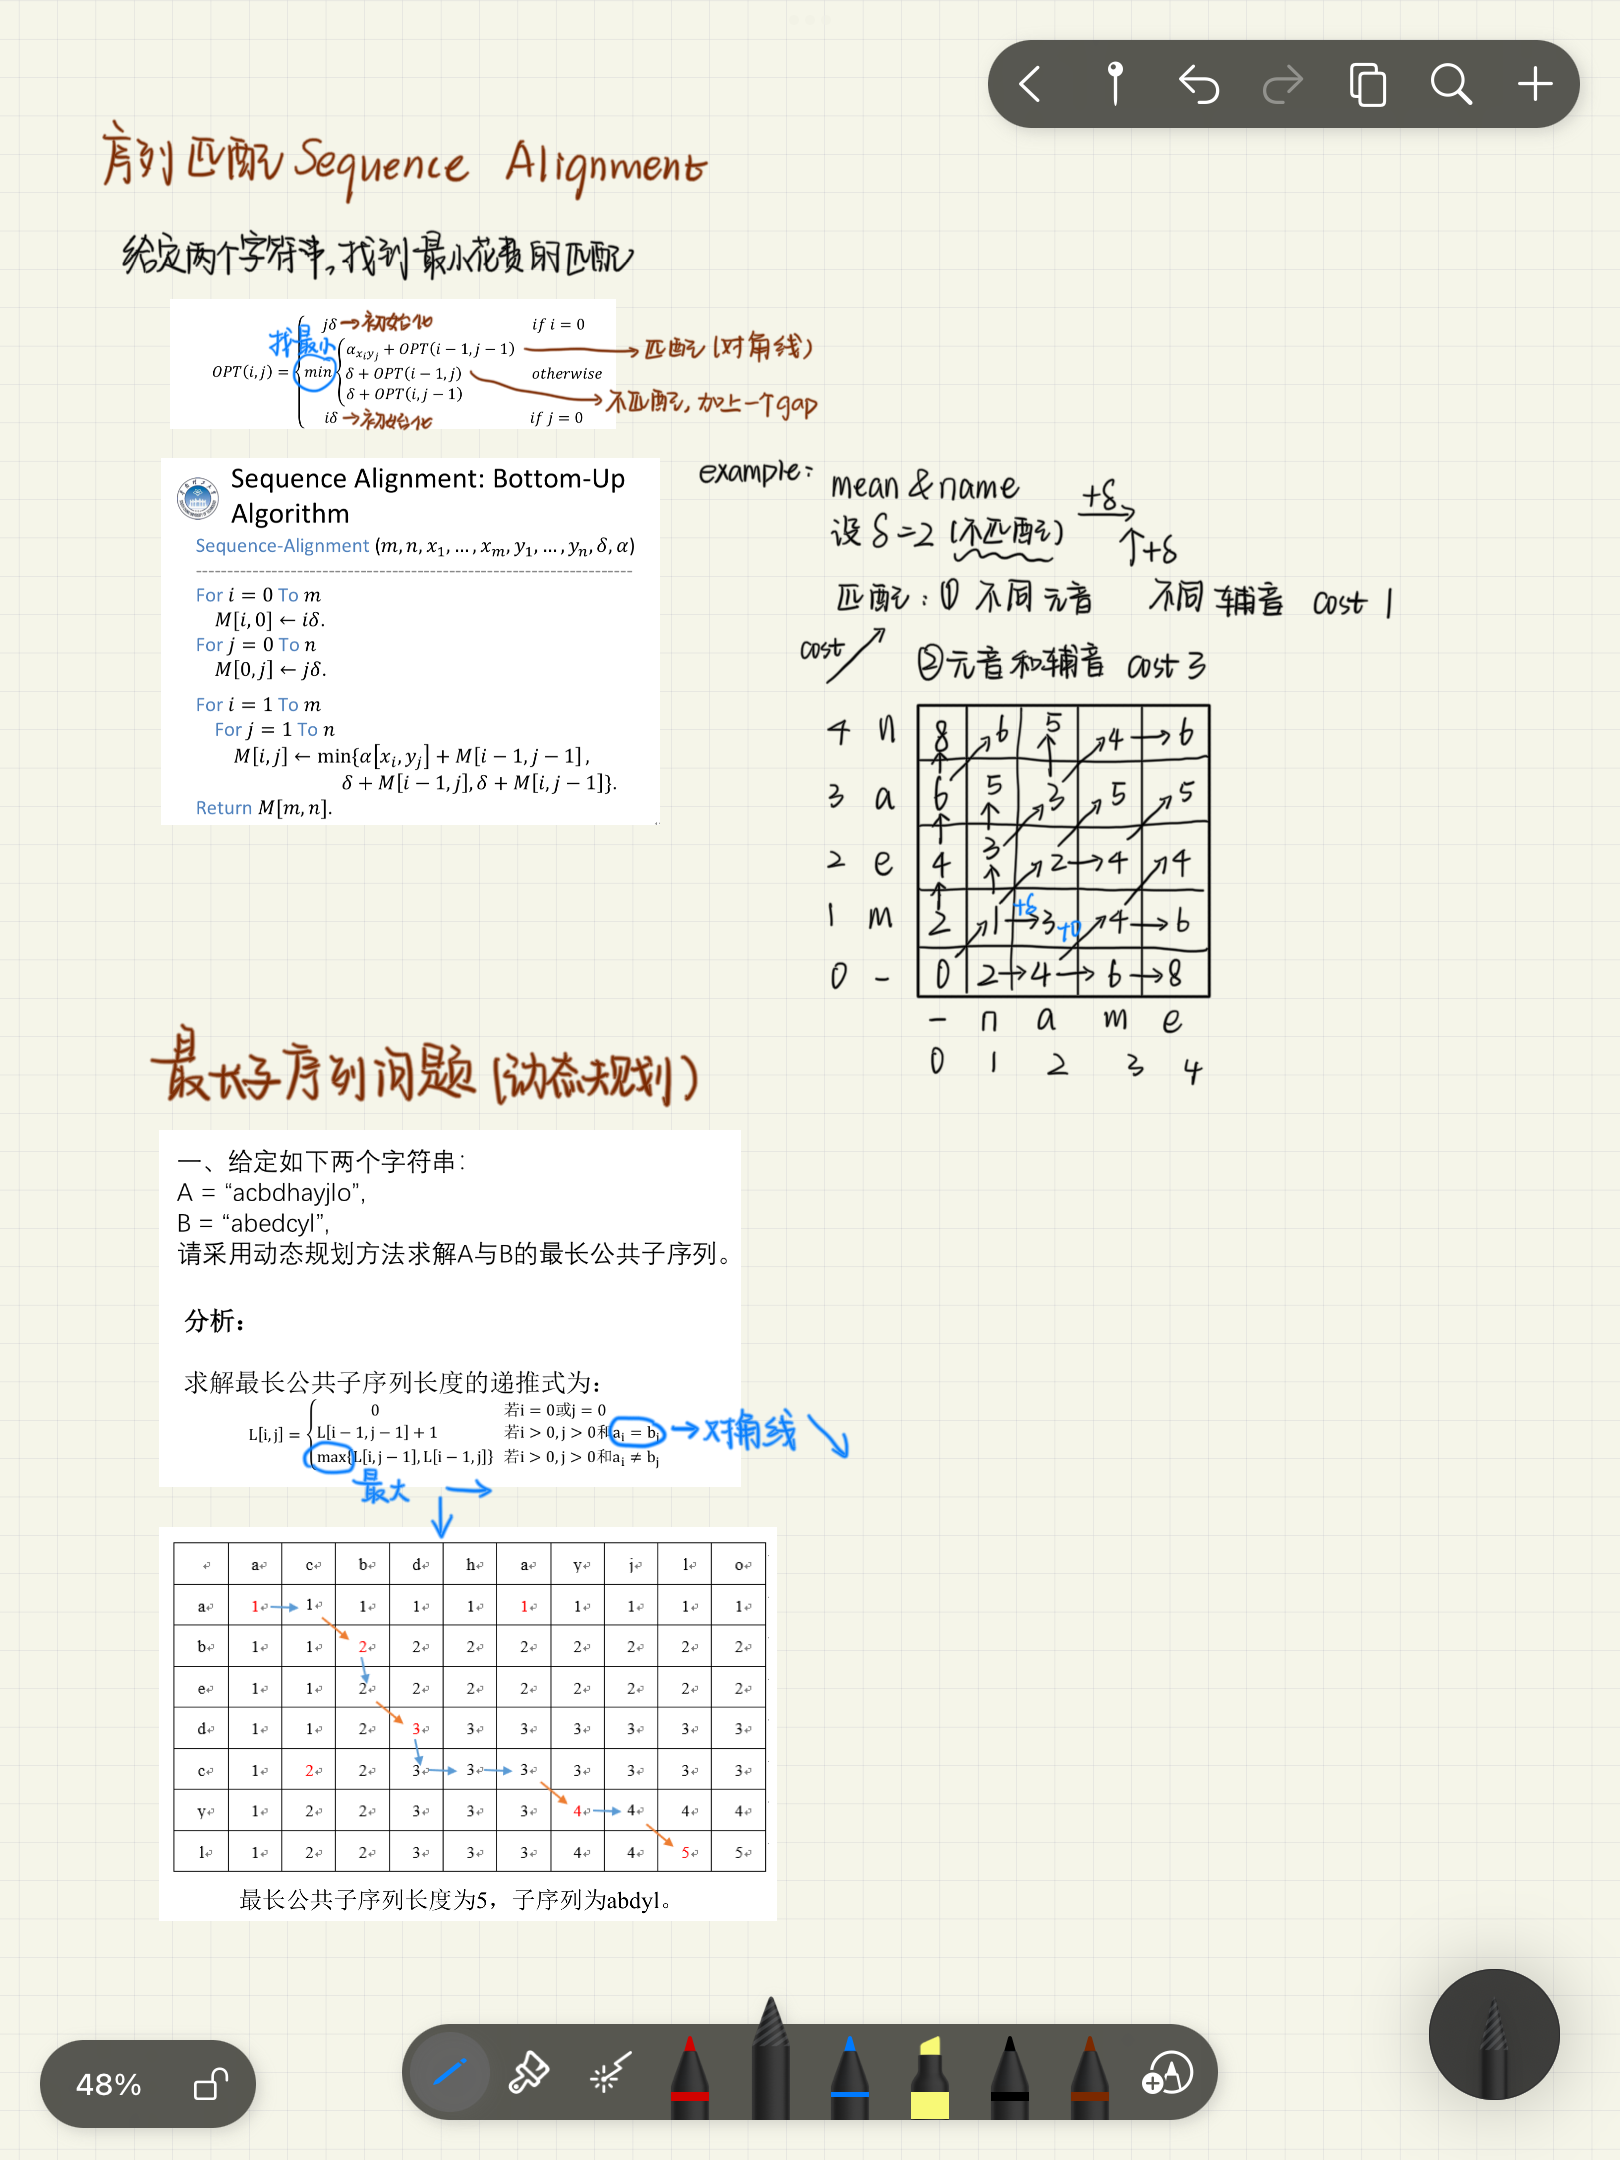 序列匹配 Sequence Alignment
给定两个字符串,找到最小花费的匹配
jδ →初始化 if i = 0
找最小
α_{x_i y_j} + OPT(i − 1, j − 1) → 匹配(对角线)
OPT(i, j) = min δ + OPT(i − 1, j) otherwise → 不匹配,加上一个gap
δ + OPT(i, j − 1)
iδ →初始化 if j = 0
Sequence Alignment: Bottom-Up
Algorithm
Sequence-Alignment (m, n, x₁, …, xₘ, y₁, …, yₙ, δ, α)
For i = 0 To m
M[i, 0] ← iδ.
For j = 0 To n
M[0, j] ← jδ.
For i = 1 To m
For j = 1 To n
M[i, j] ← min{α[xᵢ, yⱼ] + M[i − 1, j − 1],
δ + M[i − 1, j], δ + M[i, j − 1]}.
Return M[m, n].
example: mean & name
设 δ=2 (不匹配) +δ→ ↑+δ
匹配: ① 不同元音 不同辅音 cost 1
cost ↗ ②元音和辅音 cost 3
4 n 8 6 5 4 → 6
3 a 6 5 3 5 5
2 e 4 3 2 → 4 4
1 m 2 1 +δ → 3 +0 4 → 6
0 - 0 2 → 4 → 6 → 8
- n a m e
0 1 2 3 4
最长子序列问题 (动态规划)
一、给定如下两个字符串:
A = “acbdhayjlo”,
B = “abedcyl”,
请采用动态规划方法求解A与B的最长公共子序列。
分析:
求解最长公共子序列长度的递推式为:
0 若i = 0或j = 0
L[i, j] = L[i − 1, j − 1] + 1 若i > 0, j > 0和aᵢ = bⱼ → 对角线 ↘
max{L[i, j − 1], L[i − 1, j]} 若i > 0, j > 0和aᵢ ≠ bⱼ
最大 → ↓
a c b d h a y j l o
a 1 1 1 1 1 1 1 1 1 1
b 1 1 2 2 2 2 2 2 2 2
e 1 1 2 2 2 2 2 2 2 2
d 1 1 2 3 3 3 3 3 3 3
c 1 2 2 3 3 3 3 3 3 3
y 1 2 2 3 3 3 4 4 4 4
l 1 2 2 3 3 3 4 4 5 5
最长公共子序列长度为5，子序列为abdyl。
48%